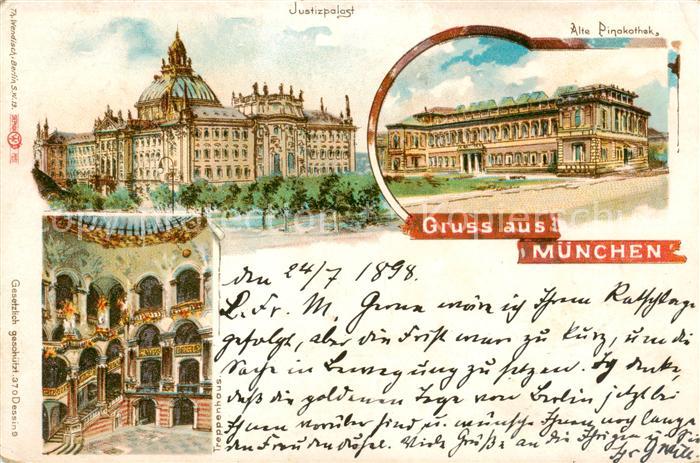 Justizpalast
Alte Pinakothek.
Th. Wendisch. Berlin S.W. 12.
Gesetzlich geschützt. 370 Dessins
Treppenhaus.
Gruss aus
MÜNCHEN
den 24/7 1898.
L. Fr. M. Gerne wäre ich Ihrem Ratschlage
gefolgt, aber die Frist war zu kurz, um die
Sache in Bewegung zu setzen. Ich denke,
daß die goldenen Tage von Berlin jetzt bei
Ihnen vorüber sind u. wünsche Ihnen noch lange
den Freudendusel. Viele Grüße an die Ihrigen u. Sie
Ihr